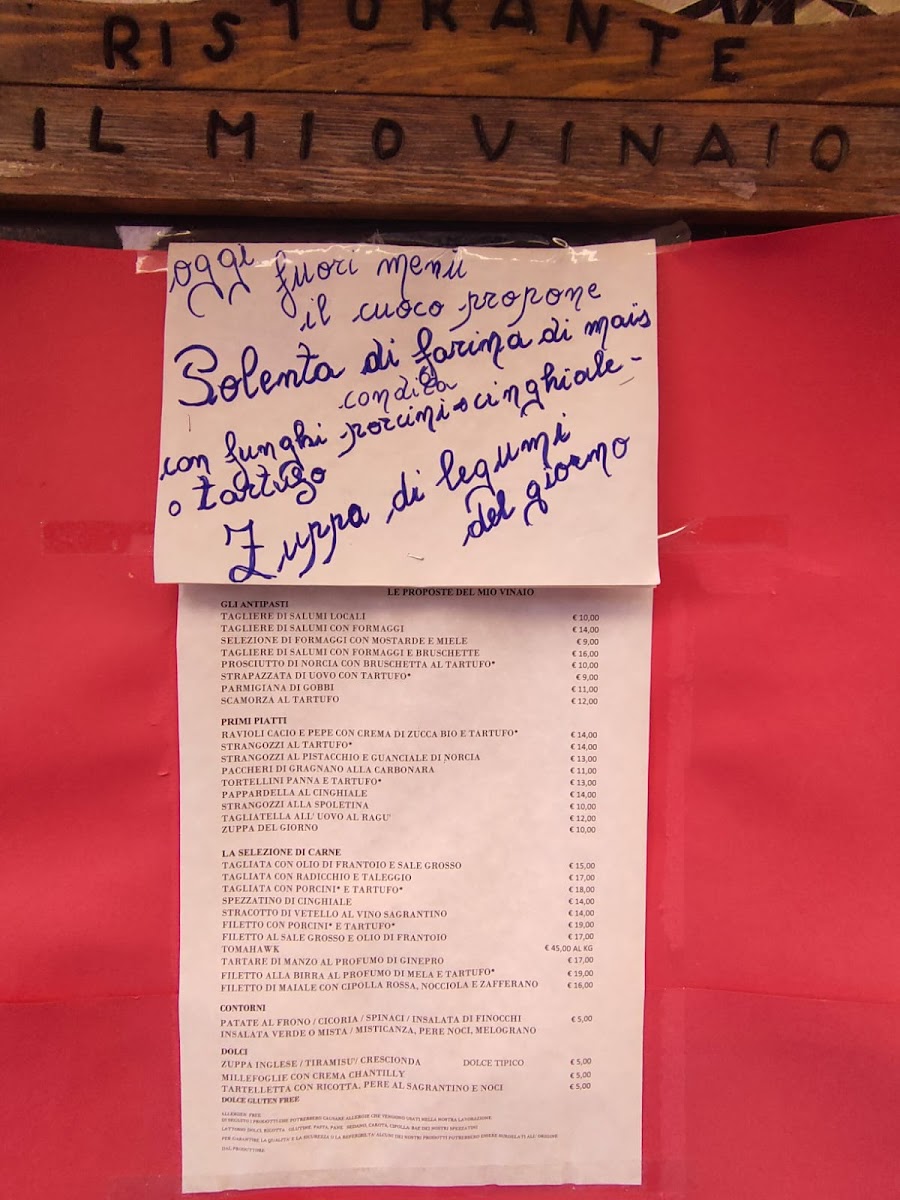 RISTORANTE
IL MIO VINAIO
oggi fuori menù
il cuoco propone
Polenta di farina di maïs
condita
con funghi porcini o cinghiale -
o tartufo
Zuppa di legumi
del giorno
LE PROPOSTE DEL MIO VINAIO
GLI ANTIPASTI
TAGLIERE DI SALUMI LOCALI € 10,00
TAGLIERE DI SALUMI CON FORMAGGI € 14,00
SELEZIONE DI FORMAGGI CON MOSTARDE E MIELE € 9,00
TAGLIERE DI SALUMI CON FORMAGGI E BRUSCHETTE € 16,00
PROSCIUTTO DI NORCIA CON BRUSCHETTA AL TARTUFO* € 10,00
STRAPAZZATA DI UOVO CON TARTUFO* € 9,00
PARMIGIANA DI GOBBI € 11,00
SCAMORZA AL TARTUFO € 12,00
PRIMI PIATTI
RAVIOLI CACIO E PEPE CON CREMA DI ZUCCA BIO E TARTUFO* € 14,00
STRANGOZZI AL TARTUFO* € 14,00
STRANGOZZI AL PISTACCHIO E GUANCIALE DI NORCIA € 13,00
PACCHERI DI GRAGNANO ALLA CARBONARA € 11,00
TORTELLINI PANNA E TARTUFO* € 13,00
PAPPARDELLA AL CINGHIALE € 14,00
STRANGOZZI ALLA SPOLETINA € 10,00
TAGLIATELLA ALL' UOVO AL RAGU' € 12,00
ZUPPA DEL GIORNO € 10,00
LA SELEZIONE DI CARNE
TAGLIATA CON OLIO DI FRANTOIO E SALE GROSSO € 15,00
TAGLIATA CON RADICCHIO E TALEGGIO € 17,00
TAGLIATA CON PORCINI* E TARTUFO* € 18,00
SPEZZATINO DI CINGHIALE € 14,00
STRACOTTO DI VETELLO AL VINO SAGRANTINO € 14,00
FILETTO CON PORCINI* E TARTUFO* € 19,00
FILETTO AL SALE GROSSO E OLIO DI FRANTOIO € 17,00
TOMAHAWK € 45,00 AL KG
TARTARE DI MANZO AL PROFUMO DI GINEPRO € 17,00
FILETTO ALLA BIRRA AL PROFUMO DI MELA E TARTUFO* € 19,00
FILETTO DI MAIALE CON CIPOLLA ROSSA, NOCCIOLA E ZAFFERANO € 16,00
CONTORNI
PATATE AL FRONO / CICORIA / SPINACI / INSALATA DI FINOCCHI € 5,00
INSALATA VERDE O MISTA / MISTICANZA, PERE NOCI, MELOGRANO
DOLCI
ZUPPA INGLESE / TIRAMISU'/ CRESCIONDA DOLCE TIPICO € 5,00
MILLEFOGLIE CON CREMA CHANTILLY € 5,00
TARTELLETTA CON RICOTTA, PERE AL SAGRANTINO E NOCI € 5,00
DOLCE GLUTEN FREE
ALLERGEN FREE
DI SEGUITO I PRODOTTI CHE POTREBBERO CAUSARE ALLERGIE CHE VENGONO USATI NELLA NOSTRA LAVORAZIONE
LATTOSIO DOLCI, RICOTTA GLUTINE PASTA, PANE SEDANO, CAROTA, CIPOLLA BAE DEI NOSTRI SPEZZATINI
PER GARANTIRE LA QUALITA' E LA SICUREZZA O LA REPERIBILITA' ALCUNI DEI NOSTRI PRODOTTI POTREBBERO ESSERE SURGELATI ALL' ORIGINE
DAL PRODUTTORE